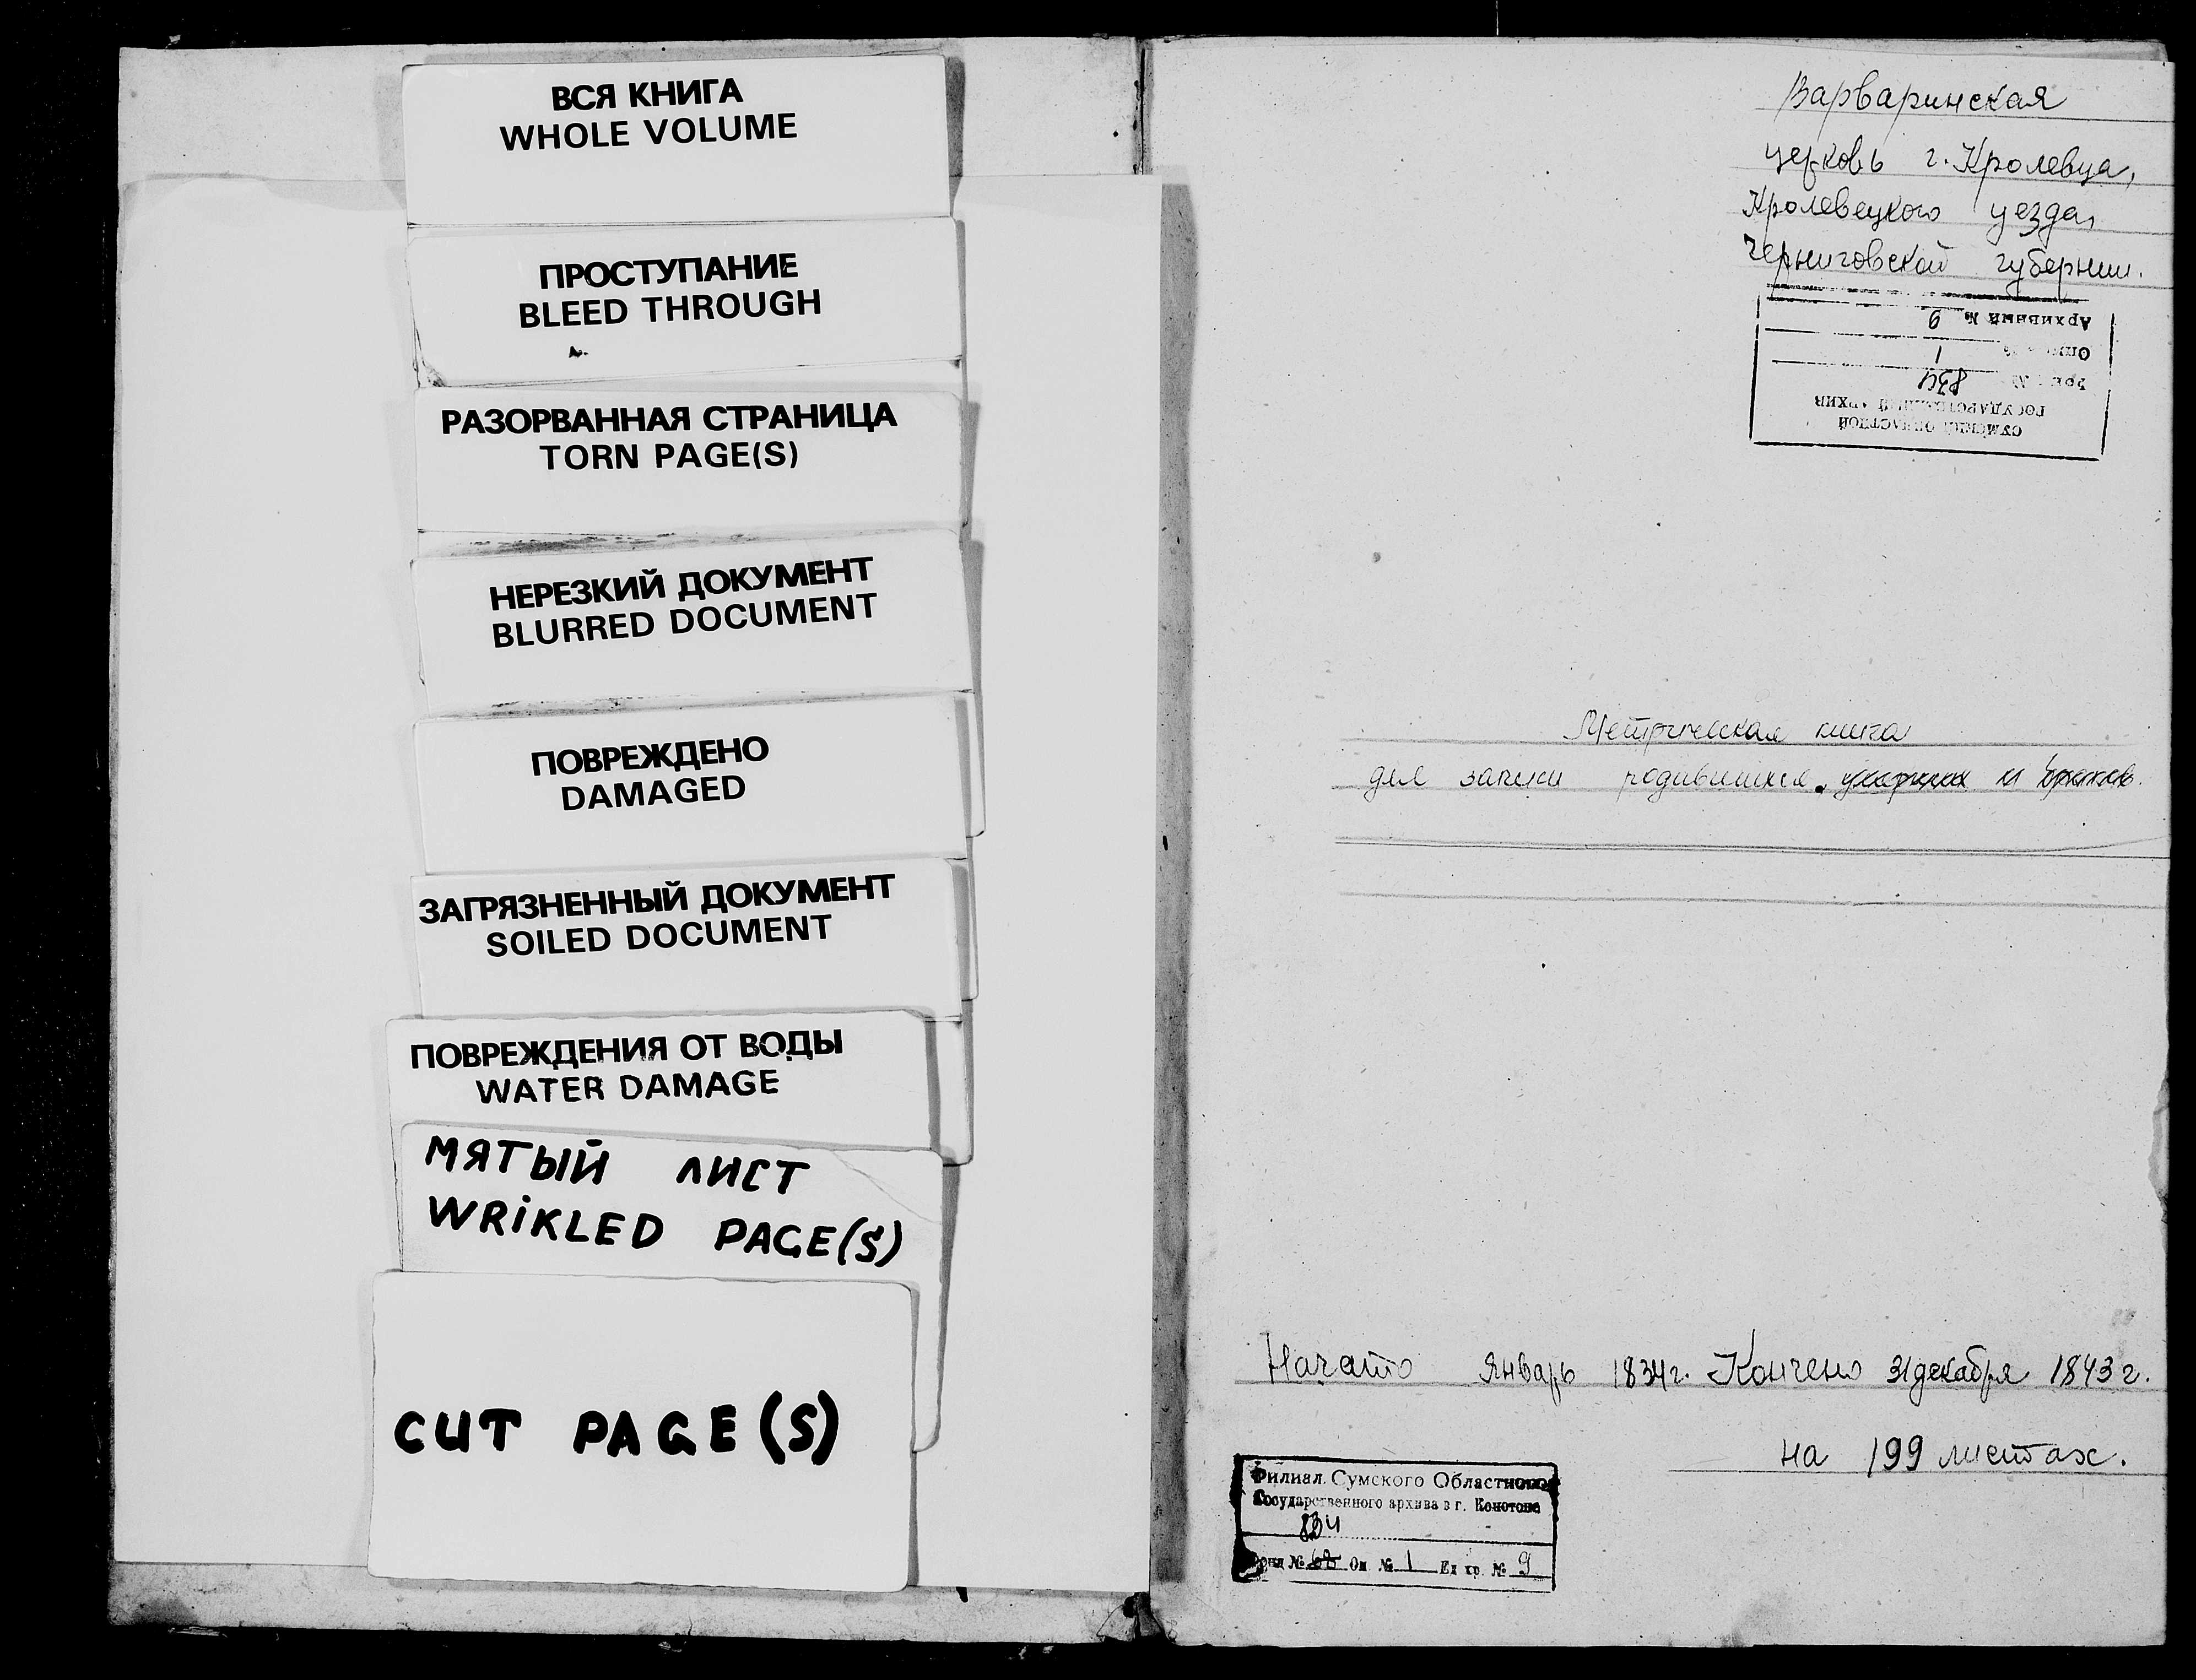 ВСЯ КНИГА
WHOLE VOLUME
ПРОСТУПАНИЕ
BLEED THROUGH
РАЗОРВАННАЯ СТРАНИЦА
TORN PAGE(S)
НЕРЕЗКИЙ ДОКУМЕНТ
BLURRED DOCUMENT
ПОВРЕЖДЕНО
DAMAGED
ЗАГРЯЗНЕННЫЙ ДОКУМЕНТ
SOILED DOCUMENT
ПОВРЕЖДЕНИЯ ОТ ВОДЫ
WATER DAMAGE
МЯТЫЙ ЛИСТ
WRiKLED PAGE(S)
CUT PAGE(S)
Варваринская
церковь г. Кролевца,
Кролевецкого уезда,
Черниговской губернии.
СУМСКИЙ ОБЛАСТНОЙ
ГОСУДАРСТВЕННЫЙ АРХИВ
834
1
Архивный № 9
Метрическая книга
для записи родившихся, и
Начато Январь 1834г. Кончено 31 декабря 1843 г.
на 199 листах.
Филиал Сумского Областного
Государственного архива в г. Конотопе
834
Фонд № 68 Оп № 1 Ед хр. № 9